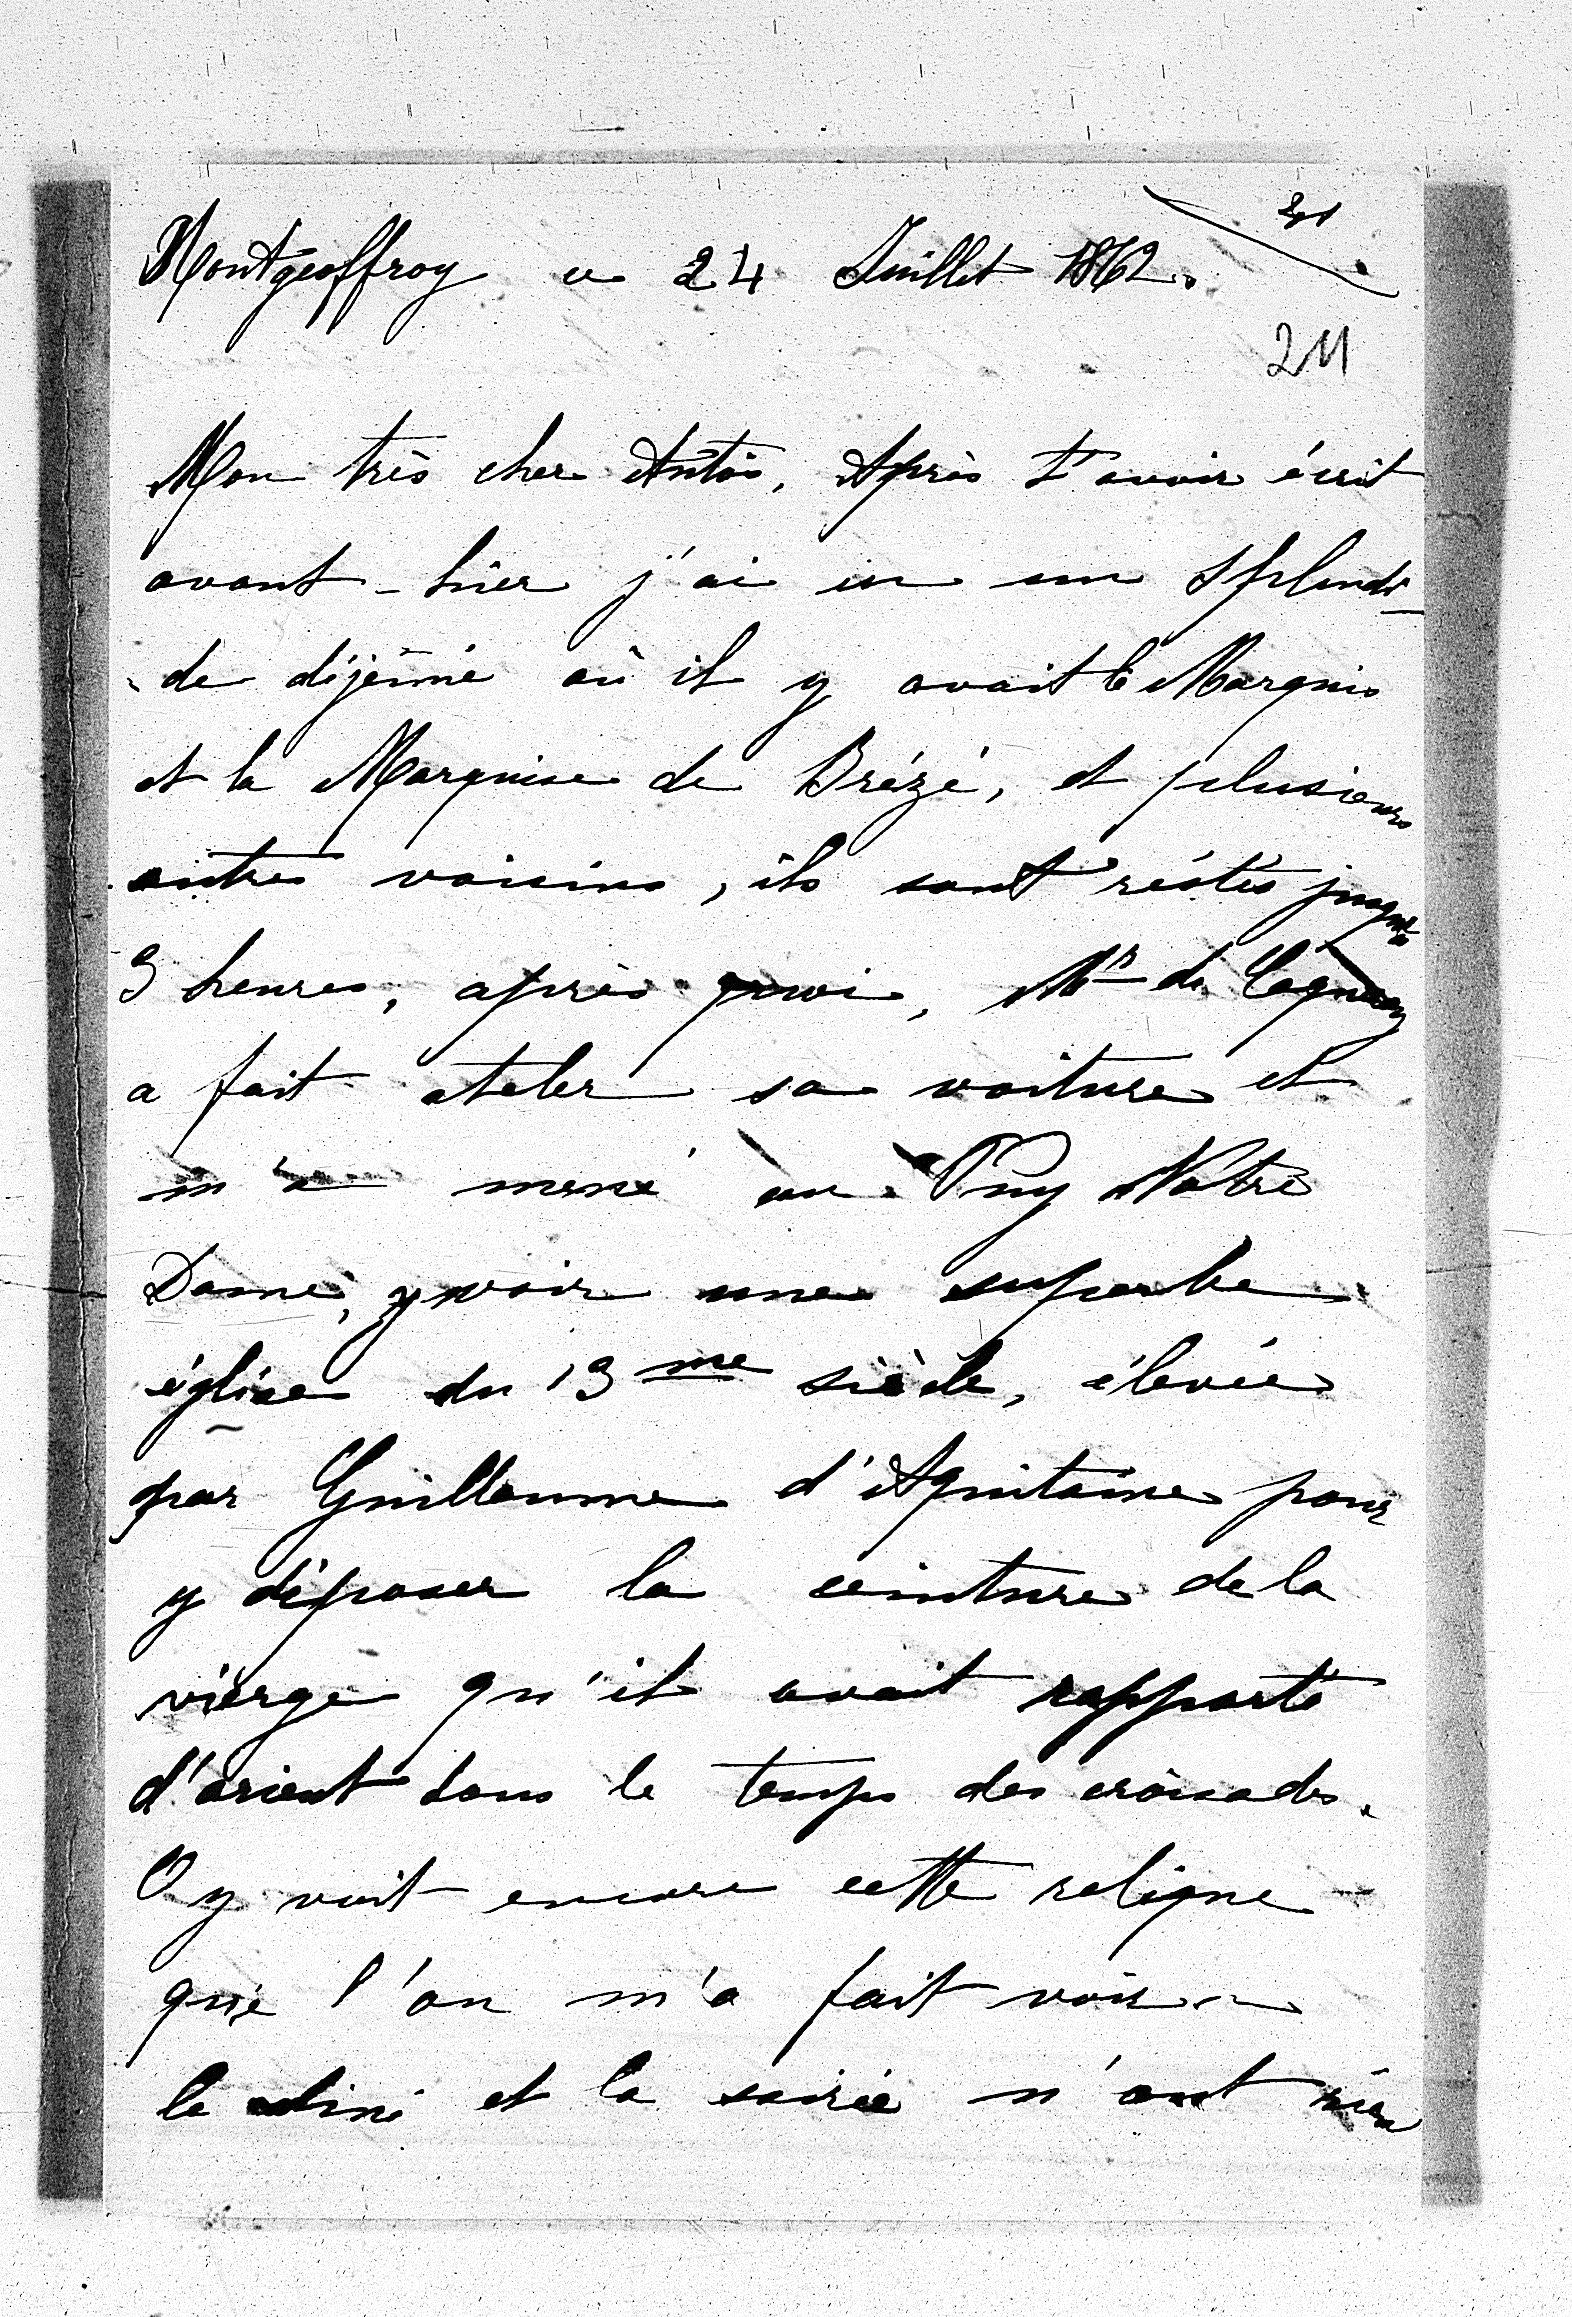 Montgeoffroy ce 24 Juillet 1862.
211
Mon très cher Antoù, Après t'avoir écrit
avant-hier j'ai eu un splendi-
de déjeuné où il y avait le Marquis
et la Marquise de Brézé, et plusieurs
autres voisins, ils sont réstés jusqu'à
3 heures, après quoi, Mr de
a fait ateler sa voiture et
m'a mené au Puy Notre
Dame, y voir une superbe
église du 13me siècle, élevée
par Guillaume d'Aquitaine pour
y déposer la ceinture de la
vièrge qu'il avait rapporté
d'orient dans le temps des croisades.
O y voit encore cette relique
que l'on m'a fait voir
le diné et la soirée n'ont rien